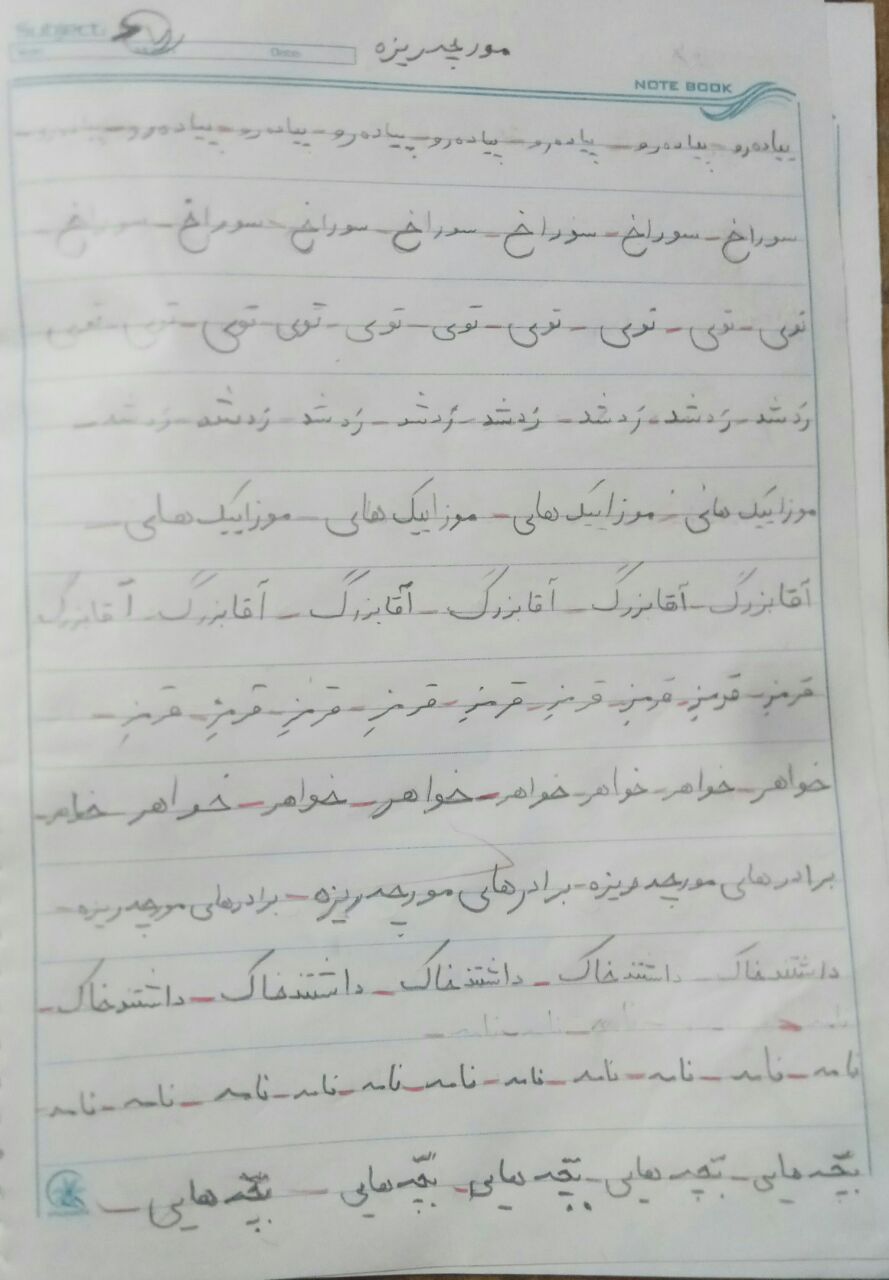 Subject:
Date:
مورچه ریزه
NOTE BOOK
پیاده‌رو - پیاده‌رو - پیاده‌رو - پیاده‌رو - پیاده‌رو - پیاده‌رو - پیاده‌رو - پیاده‌رو
سوراخ - سوراخ - سوراخ - سوراخ - سوراخ - سوراخ - سوراخ -
توی - توی - توی - توی - توی - توی - توی - توی - توی
رَد شد - رَد شد - رَد شد - رَد شد - رَد شد - رَد شد - رَد شد - رَد شد -
موزاییک های - موزاییک های - موزاییک های - موزاییک های -
آقابزرگ - آقابزرگ - آقابزرگ - آقابزرگ - آقابزرگ - آقابزرگ
قرمزِ - قرمزِ - قرمزِ - قرمزِ - قرمزِ - قرمزِ - قرمزِ - قرمزِ - قرمزِ -
خواهر - خواهر - خواهر - خواهر - خواهر - خواهر - خواهر - خواهر -
برادرهای مورچه ریزه - برادرهای مورچه ریزه - برادرهای مورچه ریزه -
داشتند خاک - داشتند خاک - داشتند خاک - داشتند خاک - داشتند خاک -
نامه - نامه - نامه - نامه - نامه - نامه - نامه - نامه - نامه - نامه
بچّه هایی - بچّه هایی - بچّه هایی - بچّه هایی - بچّه هایی -